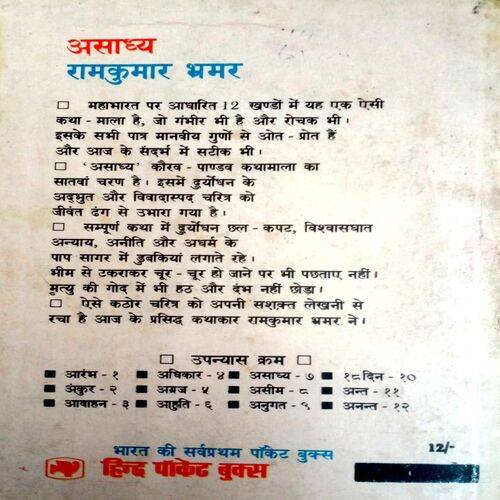 असाध्य
रामकुमार भ्रमर
□ महाभारत पर आधारित 12 खण्डों में यह एक ऐसी
कथा - माला है, जो गंभीर भी है और रोचक भी।
इसके सभी पात्र मानवीय गुणों से ओत - प्रोत हैं
और आज के संदर्भ में सटीक भी।
□ 'असाध्य' कौरव - पाण्डव कथामाला का
सातवां चरण है। इसमें दुर्योधन के
अद्भुत और विवादास्पद चरित्र को
जीवंत ढंग से उभारा गया है।
□ सम्पूर्ण कथा में दुर्योधन छल - कपट, विश्वासघात
अन्याय, अनीति और अधर्म के
पाप सागर में डुबकियां लगाते रहे।
भीम से टकराकर चूर - चूर हो जाने पर भी पछताए नहीं।
मृत्यु की गोद में भी हठ और दंभ नहीं छोड़ा।
□ ऐसे कठोर चरित्र को अपनी सशक्त लेखनी से
रचा है आज के प्रसिद्ध कथाकार रामकुमार भ्रमर ने।
□ उपन्यास क्रम □
■ आरंभ - १ ■ अधिकार - ४ ■ असाध्य - ७ ■ १८ दिन - १०
■ अंकुर - २ ■ अग्रज - ५ ■ असीम - ८ ■ अन्त - ११
■ आवाहन - ३ ■ आहुति - ६ ■ अनुगत - ९ ■ अनन्त - १२
भारत की सर्वप्रथम पॉकेट बुक्स
हिन्द पॉकेट बुक्स
12/-